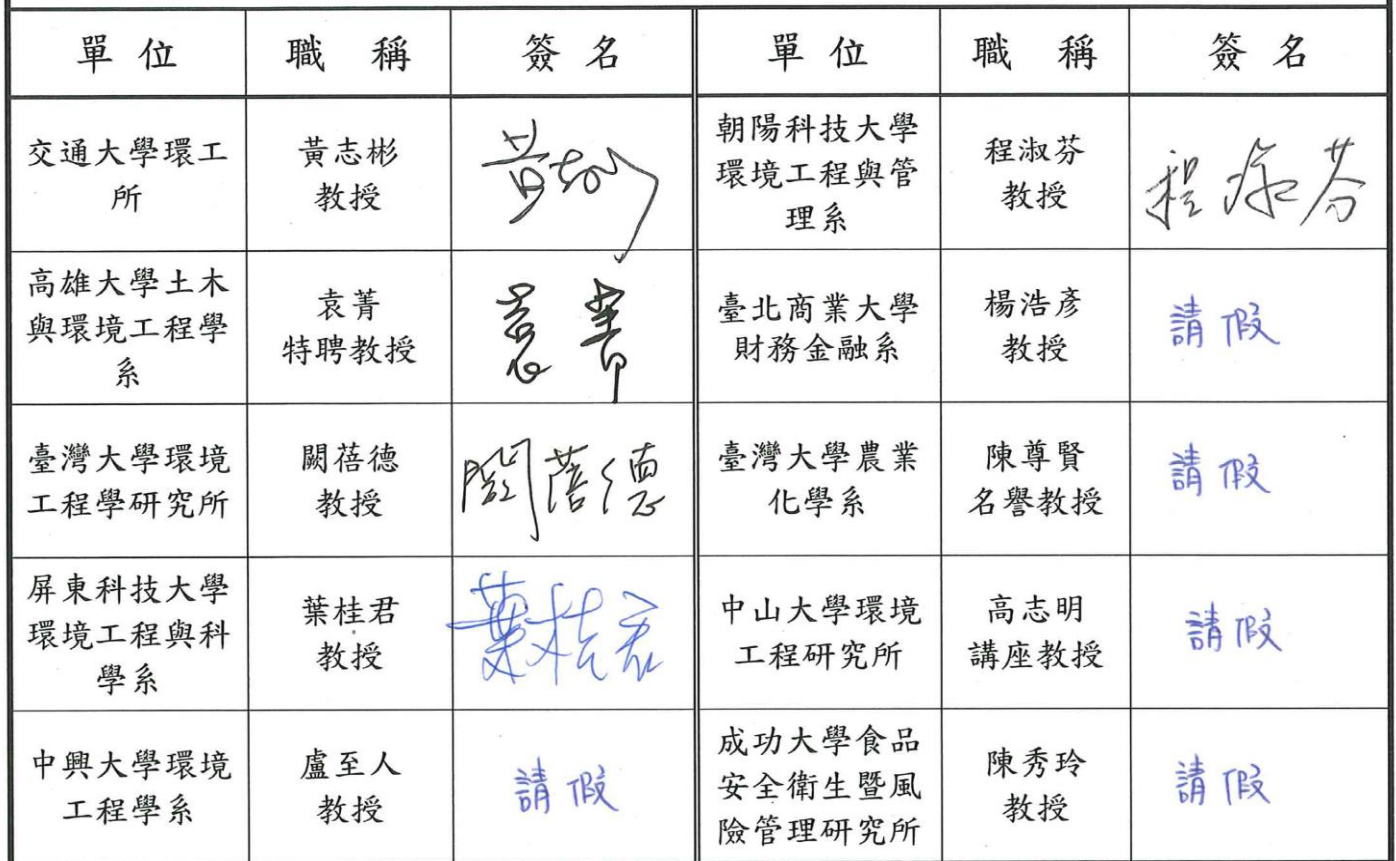 單位 職稱 簽名 單位 職稱 簽名
交通大學環工
所
黃志彬
教授
黃志彬
朝陽科技大學
環境工程與管
理系
程淑芬
教授
程淑芬
高雄大學土木
與環境工程學
系
袁菁
特聘教授
袁菁
臺北商業大學
財務金融系
楊浩彥
教授
請假
臺灣大學環境
工程學研究所
闕蓓德
教授
闕蓓德
臺灣大學農業
化學系
陳尊賢
名譽教授
請假
屏東科技大學
環境工程與科
學系
葉桂君
教授
葉桂君
中山大學環境
工程研究所
高志明
講座教授
請假
中興大學環境
工程學系
盧至人
教授
請假
成功大學食品
安全衛生暨風
險管理研究所
陳秀玲
教授
請假